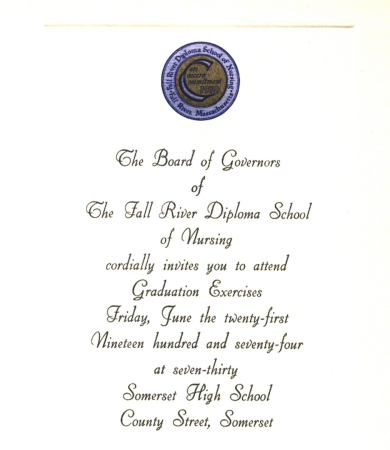 Fall River Diploma School of Nursing
Fall River, Massachusetts
The Board of Governors
of
The Fall River Diploma School
of Nursing
cordially invites you to attend
Graduation Exercises
Friday, June the twenty-first
Nineteen hundred and seventy-four
at seven-thirty
Somerset High School
County Street, Somerset